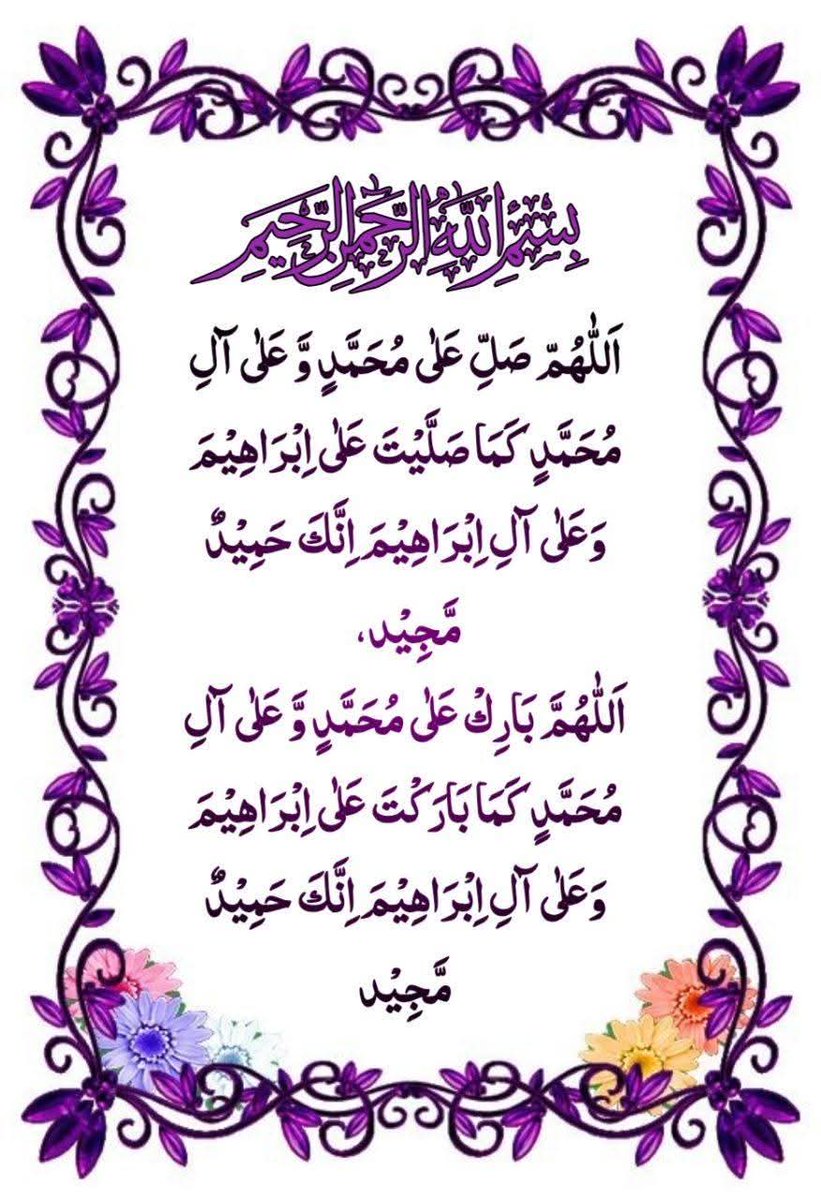 بِسْمِ اللَّهِ الرَّحْمٰنِ الرَّحِيمِ
اَللّٰهُمّ صَلِّ عَلٰى مُحَمَّدٍ وَّ عَلٰى آلِ
مُحَمَّدٍ كَمَا صَلَّيْتَ عَلٰى اِبْرَاهِيْمَ
وَعَلٰى آلِ اِبْرَاهِيْمَ اِنَّكَ حَمِيْدٌ
مَّجِيْد،
اَللّٰهُمَّ بَارِكْ عَلٰى مُحَمَّدٍ وَّ عَلٰى آلِ
مُحَمَّدٍ كَمَا بَارَكْتَ عَلٰى اِبْرَاهِيْمَ
وَعَلٰى آلِ اِبْرَاهِيْمَ اِنَّكَ حَمِيْدٌ
مَّجِيْد